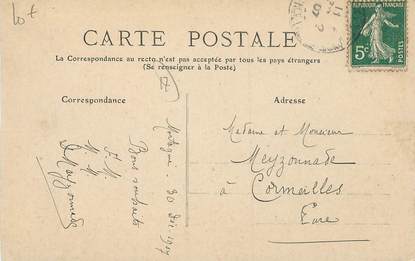 10 €
CARTE POSTALE
La Correspondance au recto n'est pas acceptée par tous les pays étrangers
(Se renseigner à la Poste)
Correspondance
Adresse
REPUBLIQUE FRANÇAISE
5c
POSTES
30 Déc. 1907
Bons souhaits
Madame et Monsieur
Meyzonnade
à Cormeilles
Eure